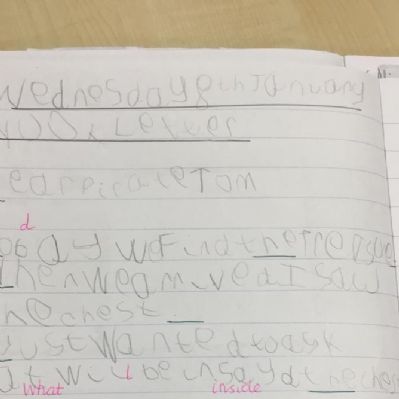 Wednesday 8th January
WOOx Letter
ear pirate Tom
d
obay we Find the Treasue
when we arrived I saw
he chest
Just wanted to ask
It will be insayd the ches
What inside